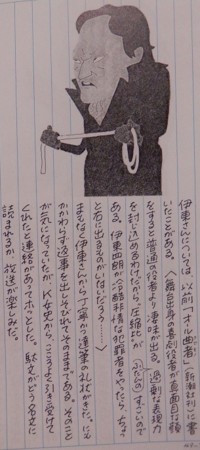 伊東さんについては、以前「オール曲者」（新潮社刊）に書
いたことがある。〈舞台出身の喜劇役者が真面目な顔
をすると普通の役者より凄味が出る。過剰な表現力
を封じ込めるわけだから、圧縮比が、ぶた位すごいので
ある。伊東四朗が冷酷非情な犯罪者をやったら、ちょっ
と右に出るものがいないだろう……〉
まもなく伊東さんから丁寧かつ達筆の礼状がきた。にも
かかわらず返事を出しそびれてそのままである。そのこと
が気になっていたが、K女史から、こころよく引き受けて
くれたと連絡があってホッとした。駄文がどう名文に
読まれるか、放送が楽しみだ。